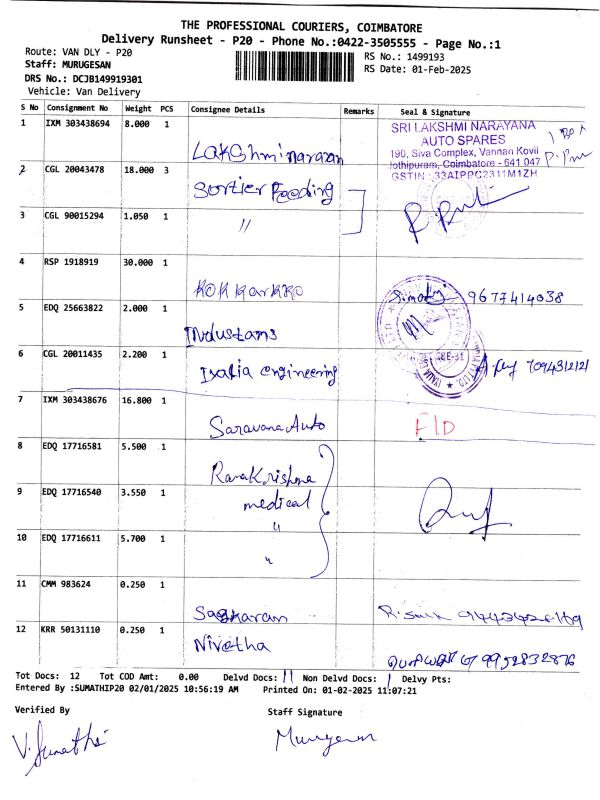 THE PROFESSIONAL COURIERS, COIMBATORE
Delivery Runsheet - P20 - Phone No.:0422-3505555 - Page No.:1
Route: VAN DLY - P20
RS No.: 1499193
Staff: MURUGESAN
RS Date: 01-Feb-2025
DRS No.: DCJB149919301
Vehicle: Van Delivery
S No Consignment No Weight PCS Consignee Details Remarks Seal & Signature
1 IXM 303438694 8.000 1 Lakshminarayan
SRI LAKSHMI NARAYANA
AUTO SPARES
190, Siva Complex, Vannan Kovil
Jothipuram, Coimbatore - 641 047
GSTIN : 33AIPPC2311M1ZH
2 CGL 20043478 18.000 3
3 CGL 90015294 1.050 1 "
4 RSP 1918919 30.000 1 KOKKarKKO 9677414038
5 EDQ 25663822 2.000 1 Industams
6 CGL 20011435 2.200 1 engineering 7094312121
7 IXM 303438676 16.800 1 Saravana Auto
8 EDQ 17716581 5.500 1 RamaKrishna
medical
9 EDQ 17716540 3.550 1 "
10 EDQ 17716611 5.700 1 "
11 CMM 983624 0.250 1
12 KRR 50131110 0.250 1 Nivetha 9952832876
Tot Docs: 12 Tot COD Amt: 0.00 Delvd Docs: 11 Non Delvd Docs: 1 Delvy Pts:
Entered By :SUMATHIP20 02/01/2025 10:56:19 AM Printed On: 01-02-2025 11:07:21
Verified By Staff Signature
V. Sumathi